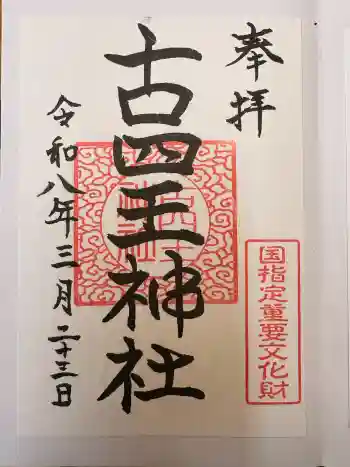 奉拝
国指定重要文化財
古四王神社
令和八年三月二十三日